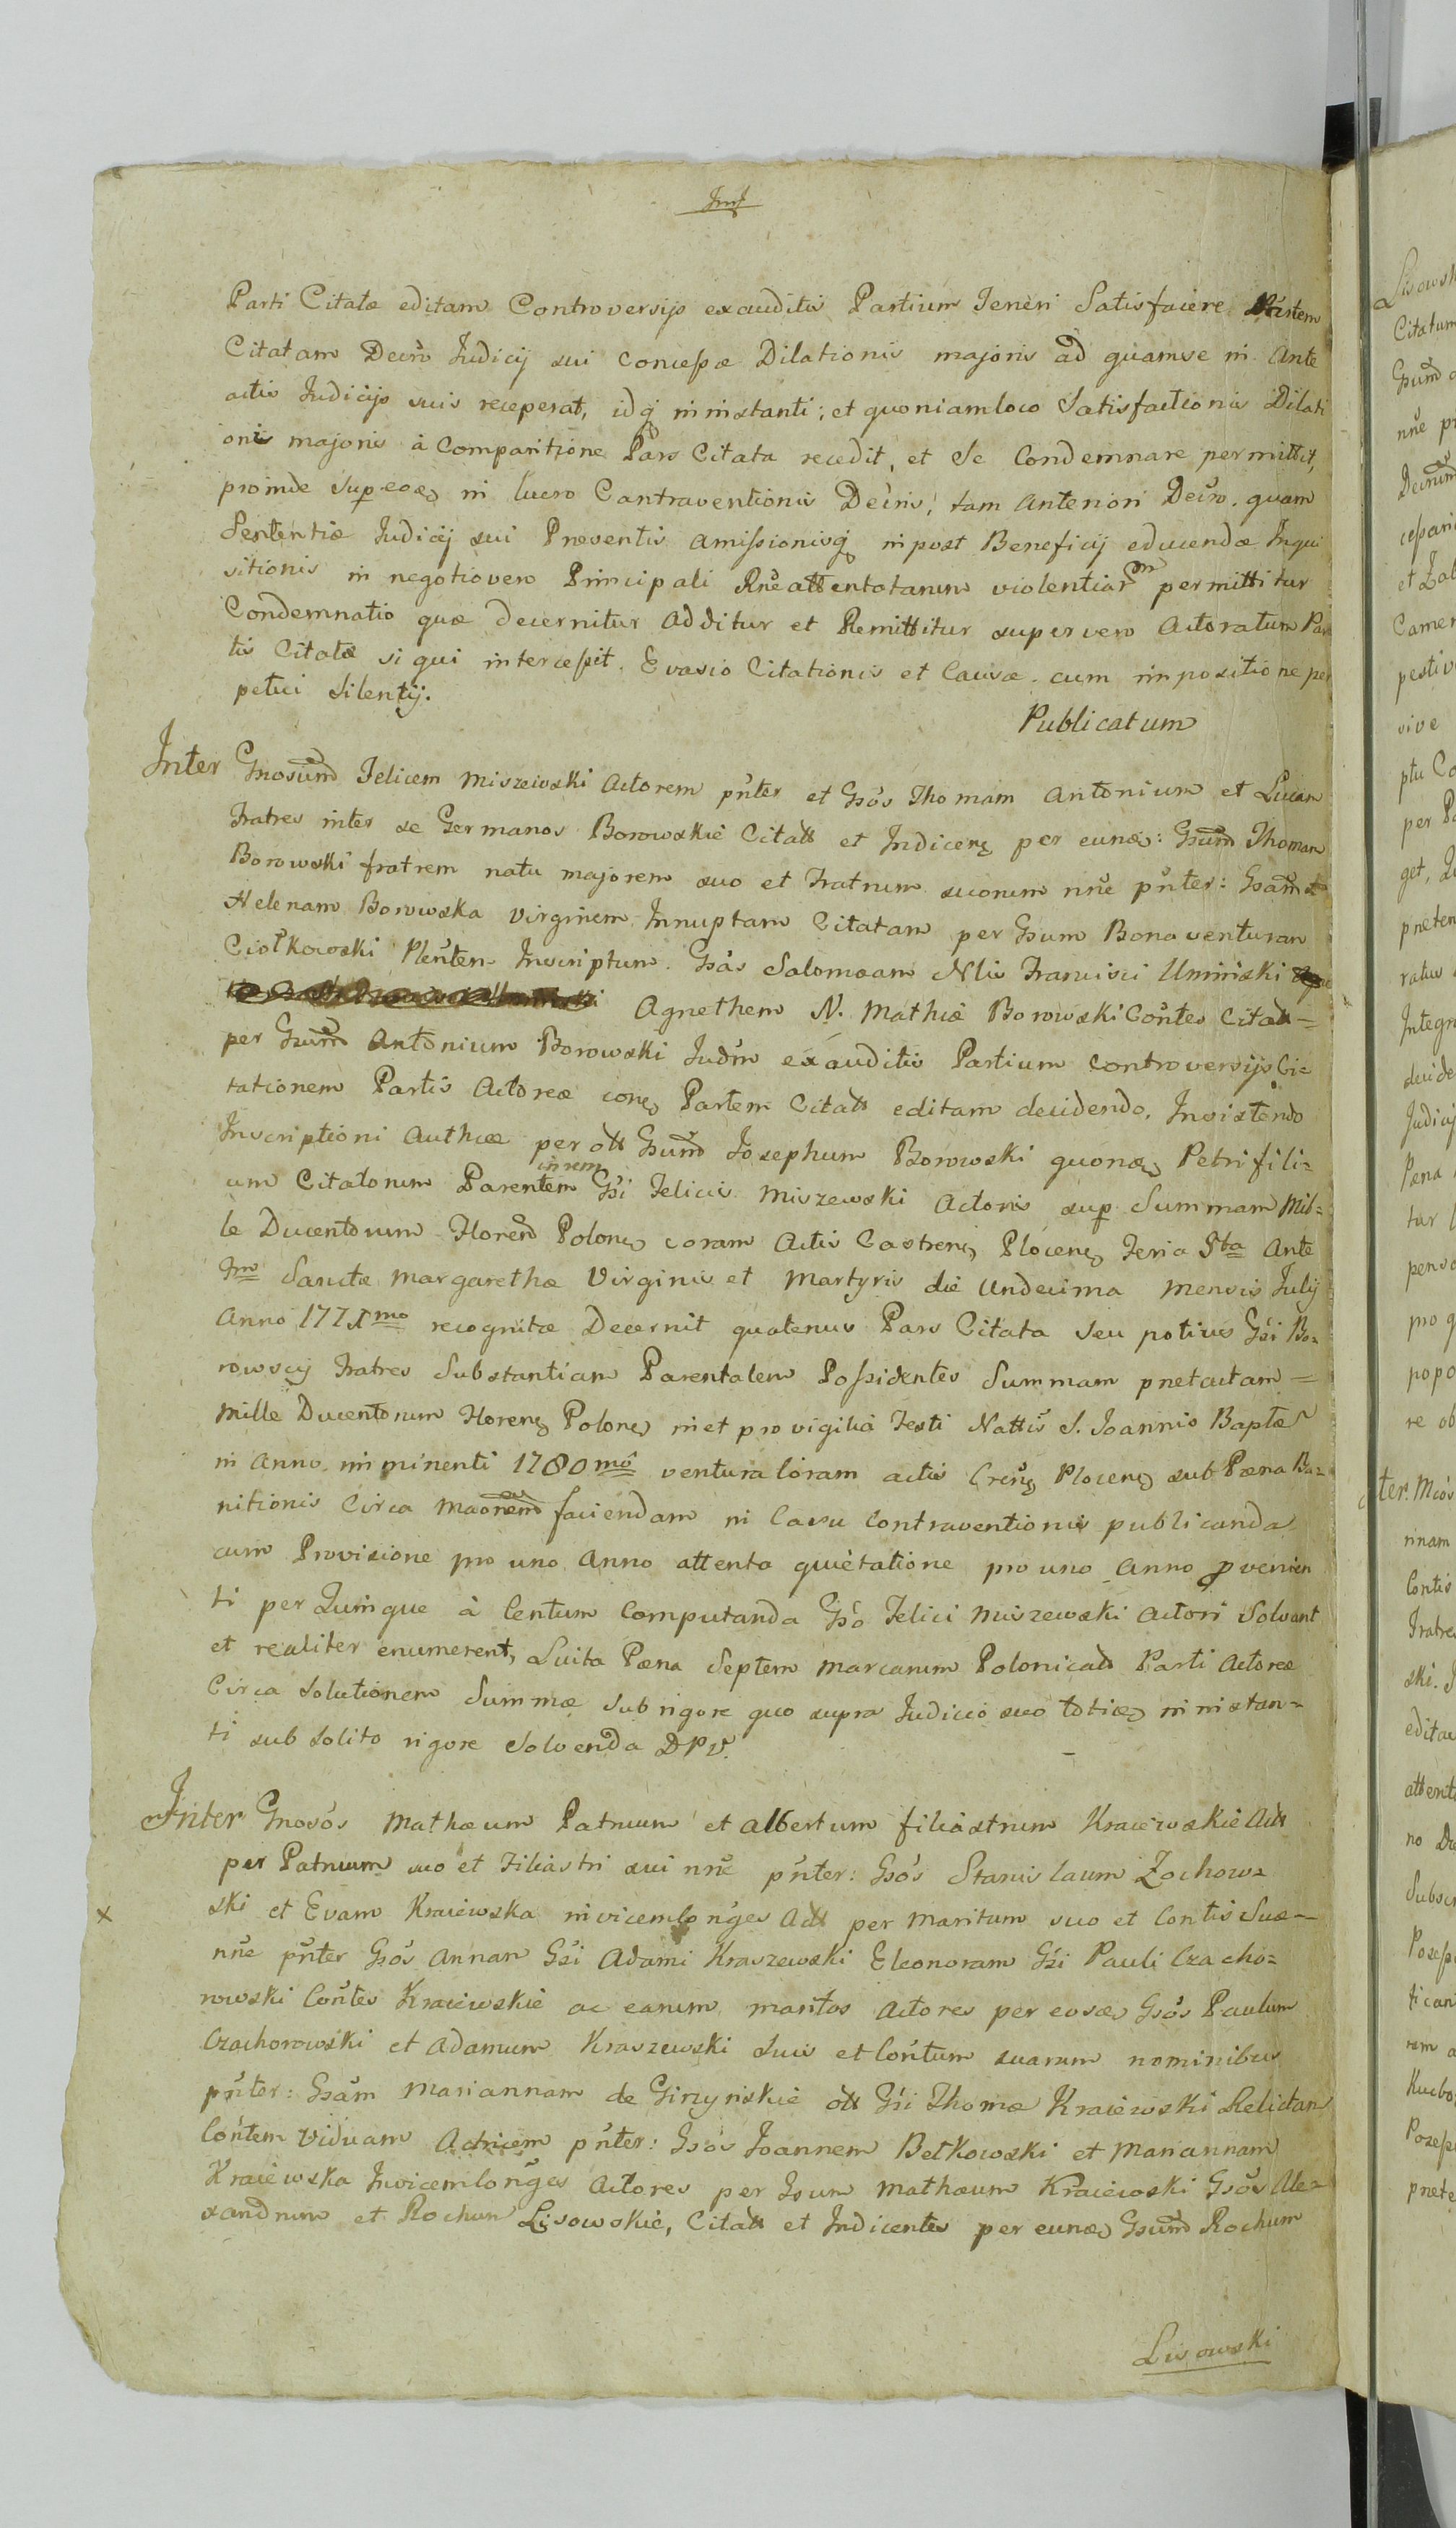 Parti Citatæ editam Controversijs exauditis Partium Teneri Satisfacere Partem
Citatam Decrō Judicij sui concessæ Dilationis majoris ad quamse in ante
actis Judicijs suis receperat, idq́ₓ in instanti; et quoniam loco Satisfactionis Dilati
onis majoris à Comparitione Pars Citata recedit, et Se Condemnare permittit,
proinde Super eoꝫ in lucro Contraventionis Decris, tam anteriori Decro. quam
Sententiæ Judicij sui Preventis amissionisq́ₓ in post Beneficij educendæ Inqui
sitionis in negotio vero Principali Rnē attentatarum violentiarm permittitur
Condemnatio quæ decernitur Additur et Remittitur super vero Actoratum Par
tis Citatæ si qui intercessit. Evasio Citationis et Causæ. cum impositione per
petui Silentij.
Publicatum
Inter Gnosum̃d Felicem Miszewski Actorem pñter et Gsos Thomam Antonium et Lucam
Fratres inter se Germanos Borowskie Citatt et Indiceñ per eunæ: Gsum̃d Thomam
Borowski fratrem natu majorem suo et Fratrum suorum nñe pñter: Gsam̃
Helenam Borowska Virginem Innuptam Citatam per Gsum Bonaventuram
Ciołkowski Pleñten. Inscriptum. Gsas Salomeam Nlis Francisci Uminski
Agnethem N. Mathiæ Borowski Coñtes Citatt =
per Gsum̃d Antonium Borowski Judm̃ exauditis Partium controversijs Ci=
tationem Partis Actoreæ coneꝫ Partem Citatt editam decidendo. Insistendo
Inscriptioni Authcæ per ott Gsum̃d Josephum Borowski quonꝫ Petri fili=
in rem
um Citatorum Parentem Gsi Felicis Miszewski Actoris sup Summam Mil=
le Ducentorum Floreñ Poloneꝫ coram Actis Castreneꝫ Ploceneꝫ Feria 5ta Ante
Fm Sanctæ Margarethæ Virginis et Martyris die Undecima Mensis Julij
Anno 177 mo recognitæ Decernit quatenus Pars Citata seu potius Gsi Bo=
rowscij Fratres Substantiam Parentalem Possidentes Summam pretactam =
Mille Ducentorum Floreneꝫ Poloneꝫ in et pro vigilia Festi Nattis S. Joannis Baptæ
in Anno imminenti 1780mo ventura Coram actis Creñ Ploceneꝫ sub Pæna Ba=
nitionis Circa faciendam in Casu Contraventionis publicanda
cum Provisione pro uno Anno attenta quietatione pro uno Anno pvenien
ti per Quinque à Centum Computanda Gso Felici Miszewski Actori Solvant
et realiter enumerent, Luita Pæna Septem Marcarum Polonicatt Parti Actoreæ
Circa Solutionem Summæ sub rigore quo supra Judicio suo totieꝫ in instan=
ti sub solito rigore Solvenda DPV.
Inter Gnosos Mathæum Patruum et Albertum filiastrum Kraiewskie Actt
per Patruum suo et Filiastri sui nñe pñter: Gsos Stanislaum Zochow=
x ski et Evam Kraiewska invicem Coñges Actt per Maritum suo et Contis Suæ =
nñe pñter Gsos Annam Gsi Adami Kraszewski Eleonoram Gsi Pauli Czacho=
rowski Coñtes Kraiewskie ac earum maritos Actores per eosæꝫ Gsos Paulum
Czachorowski et Adamum Kraszewski Suis et Coñtum suarum nominibus
pñter: Gsam̃ Mariannam de Girzynskie ott Gsi Thomæ Kraiewski Relictam
Coñtem Viduam Actricem pñter: Gsos Joannem Betkowski et Mariannam
Kraiewska Invicem Coñges Actores per Gsum Mathæum Kraiewski Gsos Ale=
xandrum et Rochum Lisowskie, Citatt et Indicentes per eunꝫ Gsum̃d Rochum
Lisowski